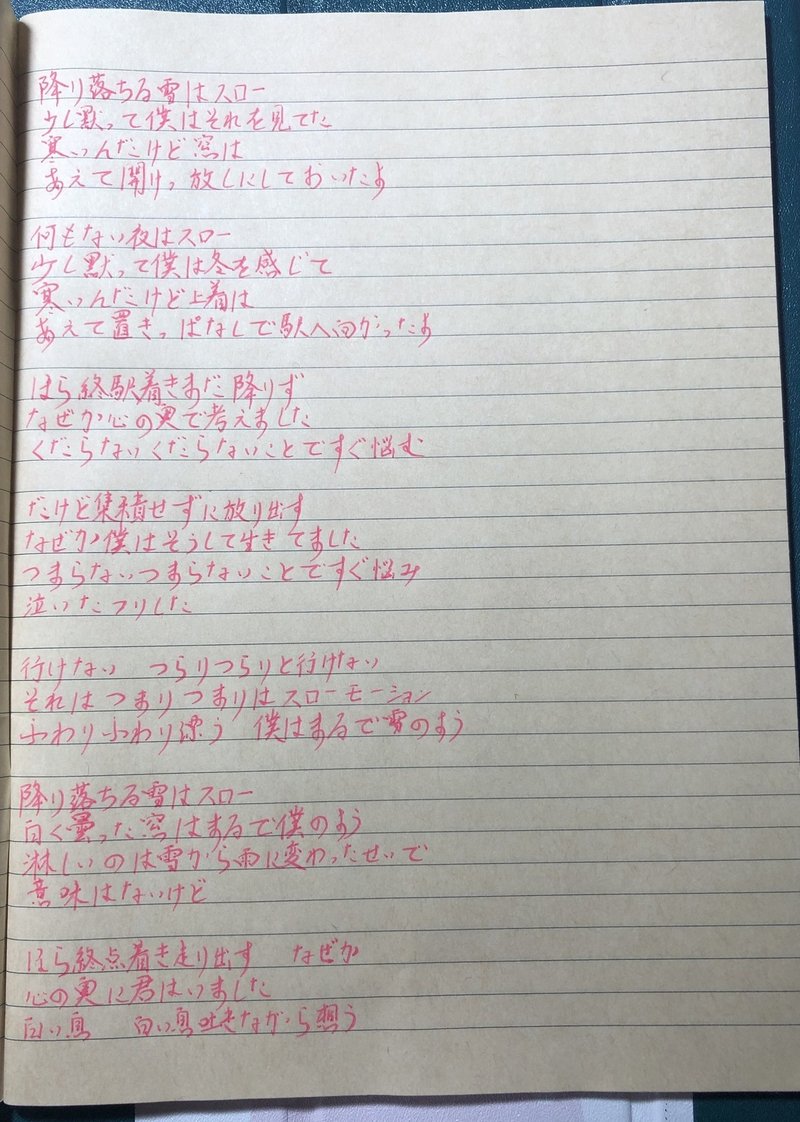 降り落ちる雪はスロー
少し黙って僕はそれを見てた
寒いんだけど窓は
あえて開けっ放しにしておいたよ
何もない夜はスロー
少し黙って僕は冬を感じて
寒いんだけど上着は
あえて置きっぱなしで駅へ向かったよ
ほら終駅着きまだ降りず
なぜか心の奥で考えました
くだらないくだらないことですぐ悩む
だけど集積せずに放り出す
なぜか僕はそうして生きてました
つまらないつまらないことですぐ悩み
泣いたフリした
行けない　つらりつらりと行けない
それはつまりつまりはスローモーション
ふわりふわり漂う　僕はまるで雪のよう
降り落ちる雪はスロー
白く曇った窓はまるで僕のよう
淋しいのは雪から雨に変わったせいで
意味はないけど
ほら終点着き走り出す　なぜか
心の奥に君はいました
白い息　白い息吐きながら想う